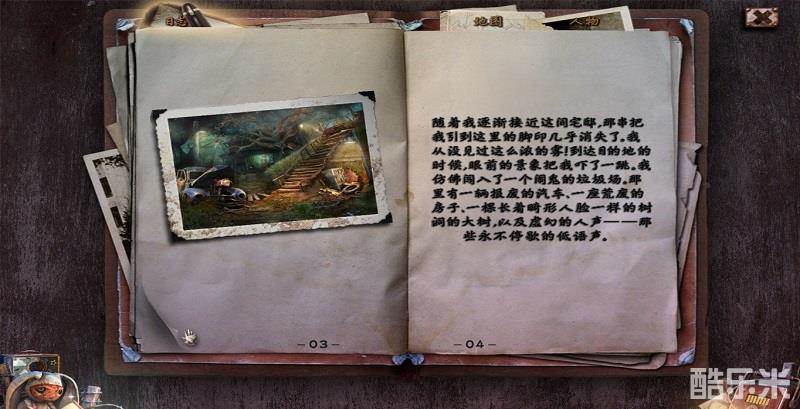 日志
地图
人物
随着我逐渐接近这间宅邸,那串把
我引到这里的脚印几乎消失了。我
从没见过这么浓的雾!到达目的地的
时候,眼前的景象把我吓了一跳。我
仿佛闯入了一个闹鬼的垃圾场,那
里有一辆报废的汽车、一座荒废的
房子、一棵长着畸形人脸一样的树
洞的大树,以及虚幻的人声——那
些永不停歇的低语声。
03
04
酷乐米